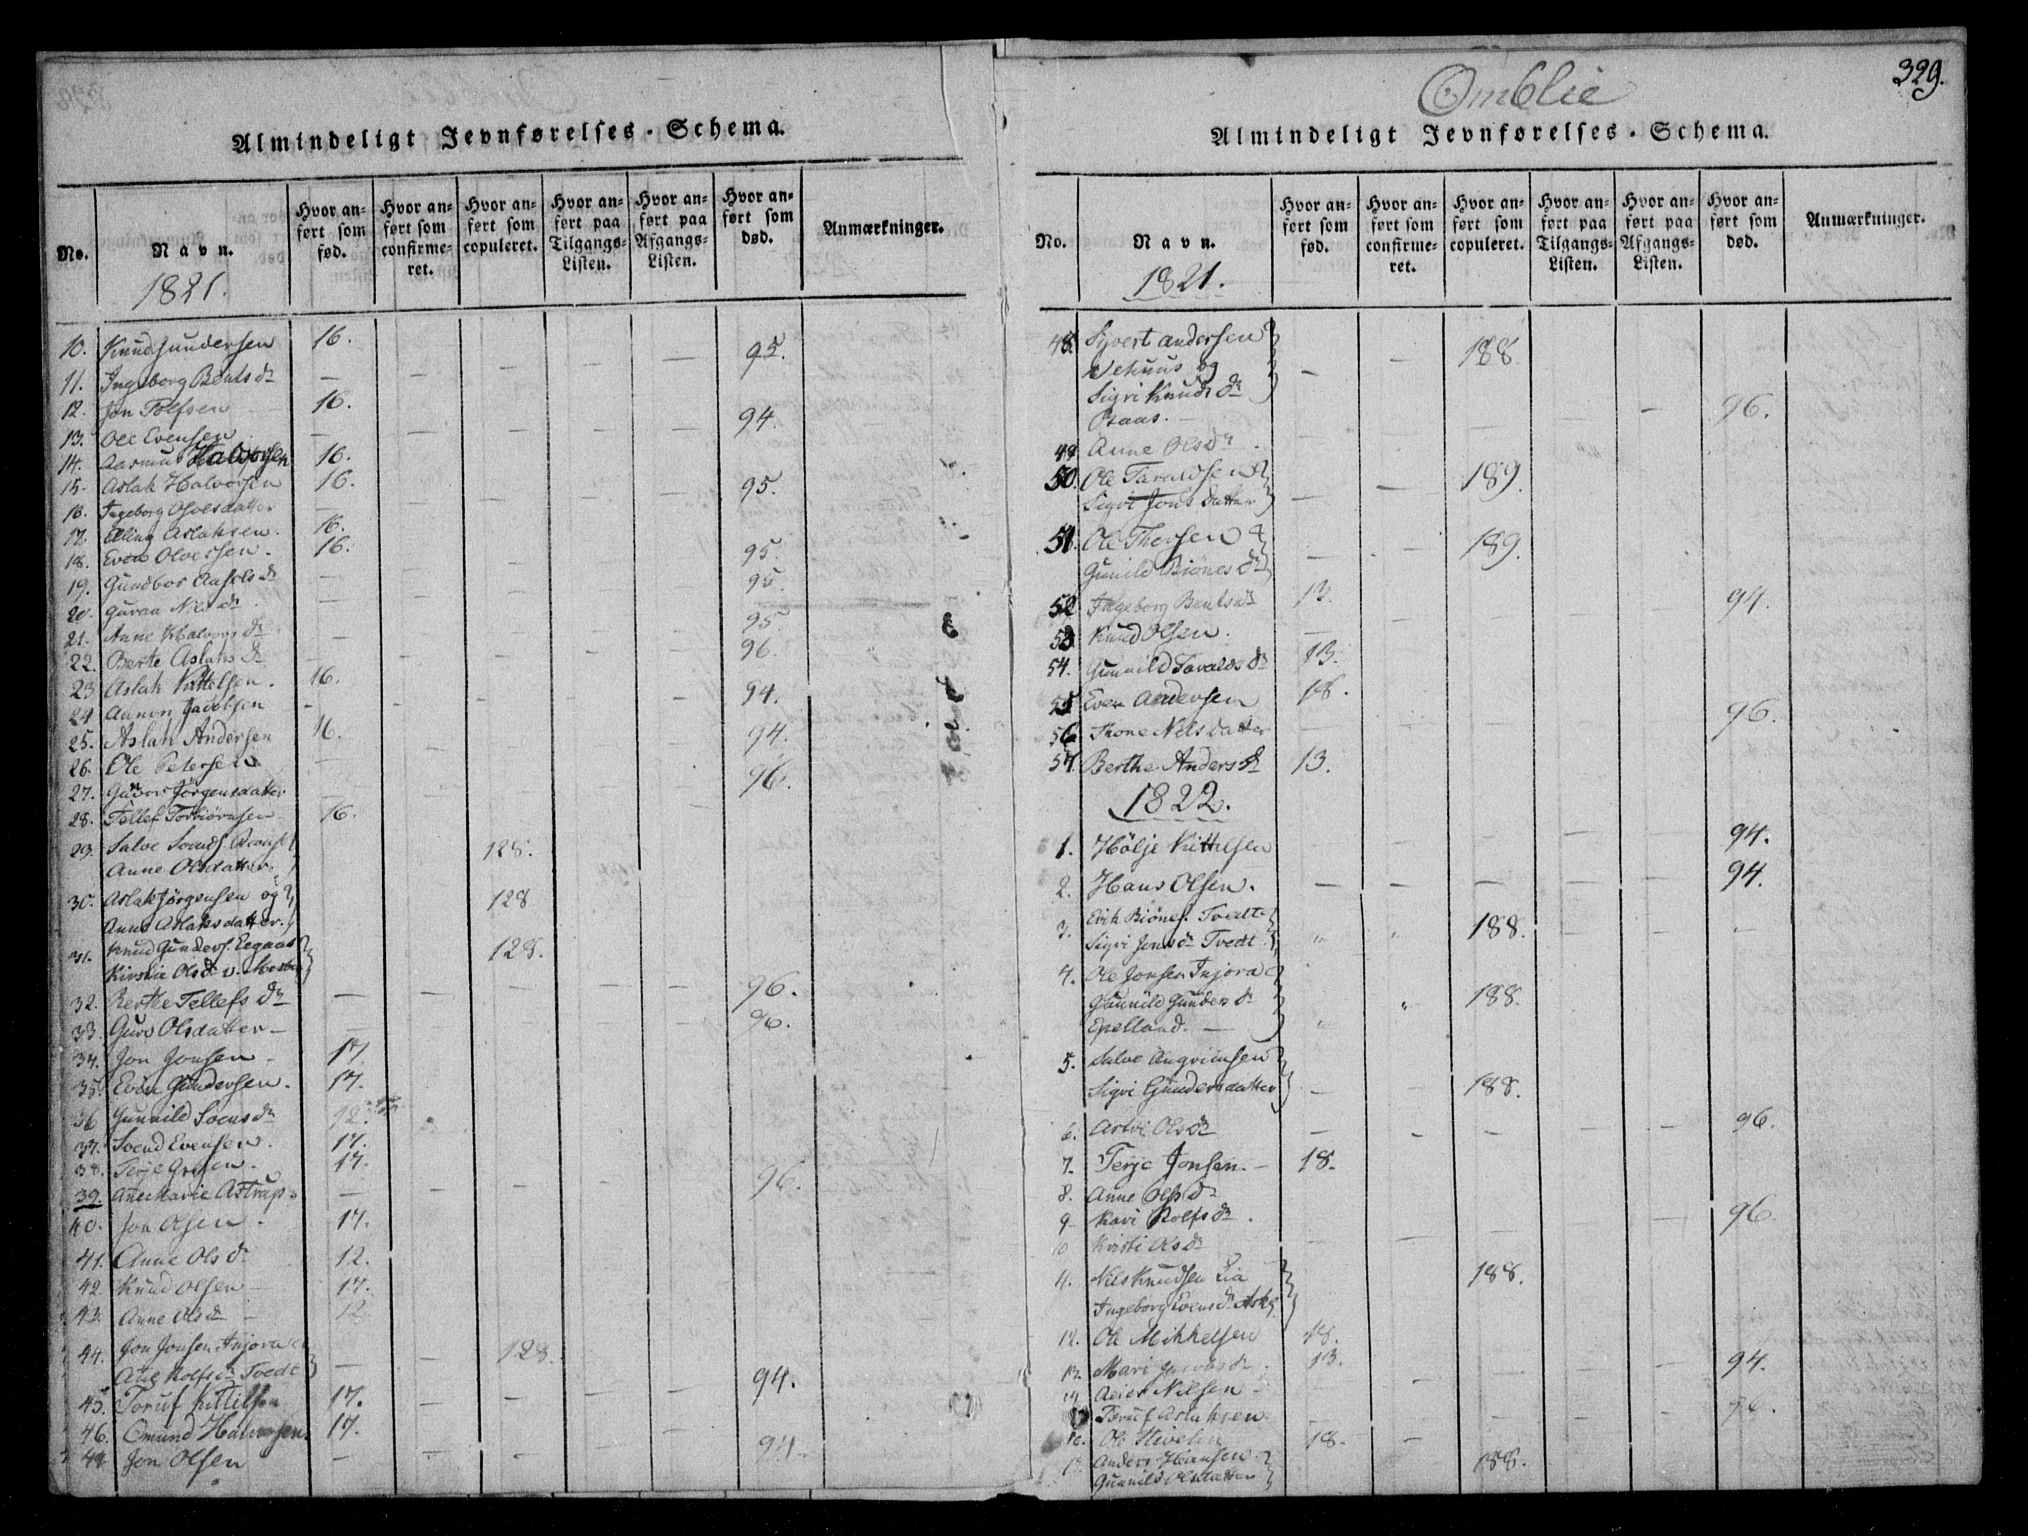 Almindeligt Jevnførelses-Schema.
No. Navn. Hvor anført som fød. Hvor anført som confirmeret. Hvor anført som copuleret. Hvor anført paa Tilgangs-Listen. Hvor anført paa Afgangs-Listen. Hvor anført som død. Anmærkninger.
1821.
10. Knud Gundersen 16.
11. Ingeborg Bentsdr — 95.
12. Jon Tolfsen 16.
13. Ole Evensen — 94.
14. Aasmund Halvorsen 16.
15. Aslak Halvorsen 16.
16. Ingeborg Olvesdatter — 95.
17. Elling Aslaksen. 16.
18. Even Olversen. 16.
19. Gundbor Aasolsdr — 95.
20. Guraa Nilsdr — 95.
21. Anne Halvorsdr — 95.
22. Berte Aslaksdr — 96
23 Aslak Kittelsen. 16.
24 Aanon Jacobsen - 94.
25. Aslan Andersen 16.
26. Ole Petersen — 94.
27. Gunvor Jörgensdatter — 96.
28. Tellef Torbiörnsen 16.
29. Salve Svends.
Anne Olsdatter. 128.
30. Aslak Jörgensen og
Anne Aslaksdatter. 128
31. Knud Gunders. Eegaas
Kirstie Olsdr v. 128.
32. Berthe Tellefsdr — 96.
33. Guro Olsdatter — 96.
34. Jon Jonsen 17.
35. Even Gundersen. 17.
36 Gunnild Soensdr 12.
37. Svend Evensen. 17.
38. Terje 17.
39. Anne Marie Astrup. — 96.
40. Jon Olsen. 17.
41. Anne Olsdr 12.
42. Knud Olsen 17.
43. Anne Olsdr 12
44. Jon Jonsen Injora
Ane Rolfsdr Tvedt 128.
45. Toruf Kittilsen 17. 94.
46. Omund Halvorsen. 17.
47. Jon Olsen — 94
Omblie
329.
Almindeligt Jevnførelses-Schema.
No. Navn. Hvor anført som fød. Hvor anført som confirmeret. Hvor anført som copuleret. Hvor anført paa Tilgangs-Listen. Hvor anført paa Afgangs-Listen. Hvor anført som død. Anmærkninger.
1821.
48. Syvert Andersen
og
Sigri Knudsdr
Osaas. 188
49 Anne Olsdr 96.
50. Ole Taraldsen
Sigri Jons Datter 189.
51. Ole Thorsen
Gunild Biönesdr 189.
52 Ingeborg Bentsdr 13.
53. Knud Olsen. — 94.
54. Gunnild Tavaldsdr 13.
55 Even Andersen 18.
56 Thone Nilsdatter — 96.
57. Berthe Andersdr 13.
1822.
1. Hölje Kittelsen — 94.
2. Hans Olsen. — 94.
3. Erik Biönes. Tvedt
Sigri Jonsdr Tvedt 188.
4. Ole Jonsen Injora
Gunnild Gundersdr
Epelland. — 188.
5. Salve Angriimsen
Sigri Gundersdatter 188.
6. Astri Olsdr — 96.
7. Terje Jonsen. — 18.
8. Anne Olsdr
9. Kari Rolfsdr. 96.
10 Kristi Olsdr
11. Nils Knudsen Lia
Ingeborg Evensdr 188.
12. Ole Mikkelsen 18.
13. Mari 13.
14 Nilsen 94.
Toruf Aslaksen 96.
16. Ole 18.
17 Anders Hansen
Gunnild Olsdatter 188.